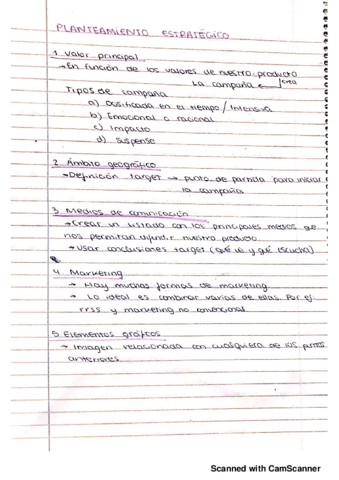 PLANTEAMIENTO ESTRATÉGICO
1. Valor principal
→ En función de los valores de nuestro producto
La campaña ← crea
Tipos de campaña
a) Dosificada en el tiempo / Intensiva
b) Emocional o racional
c) Impacto
d) Suspense
2. Ámbito geográfico
→ Definición target → punto de partida para iniciar
la campaña
3. Medios de comunicación
→ Crear un listado con los principales medios qe
nos permitan difundir nuestro producto
→ Usar conclusiones target (qué ve y qué escucha)
4. Marketing
→ Hay muchas formas de marketing
→ Lo ideal es combinar varias de ellas. Por ej
rrss y marketing no convencional
5. Elementos gráficos
→ Imagen relacionada con cualquiera de los puntos
anteriores
Scanned with CamScanner